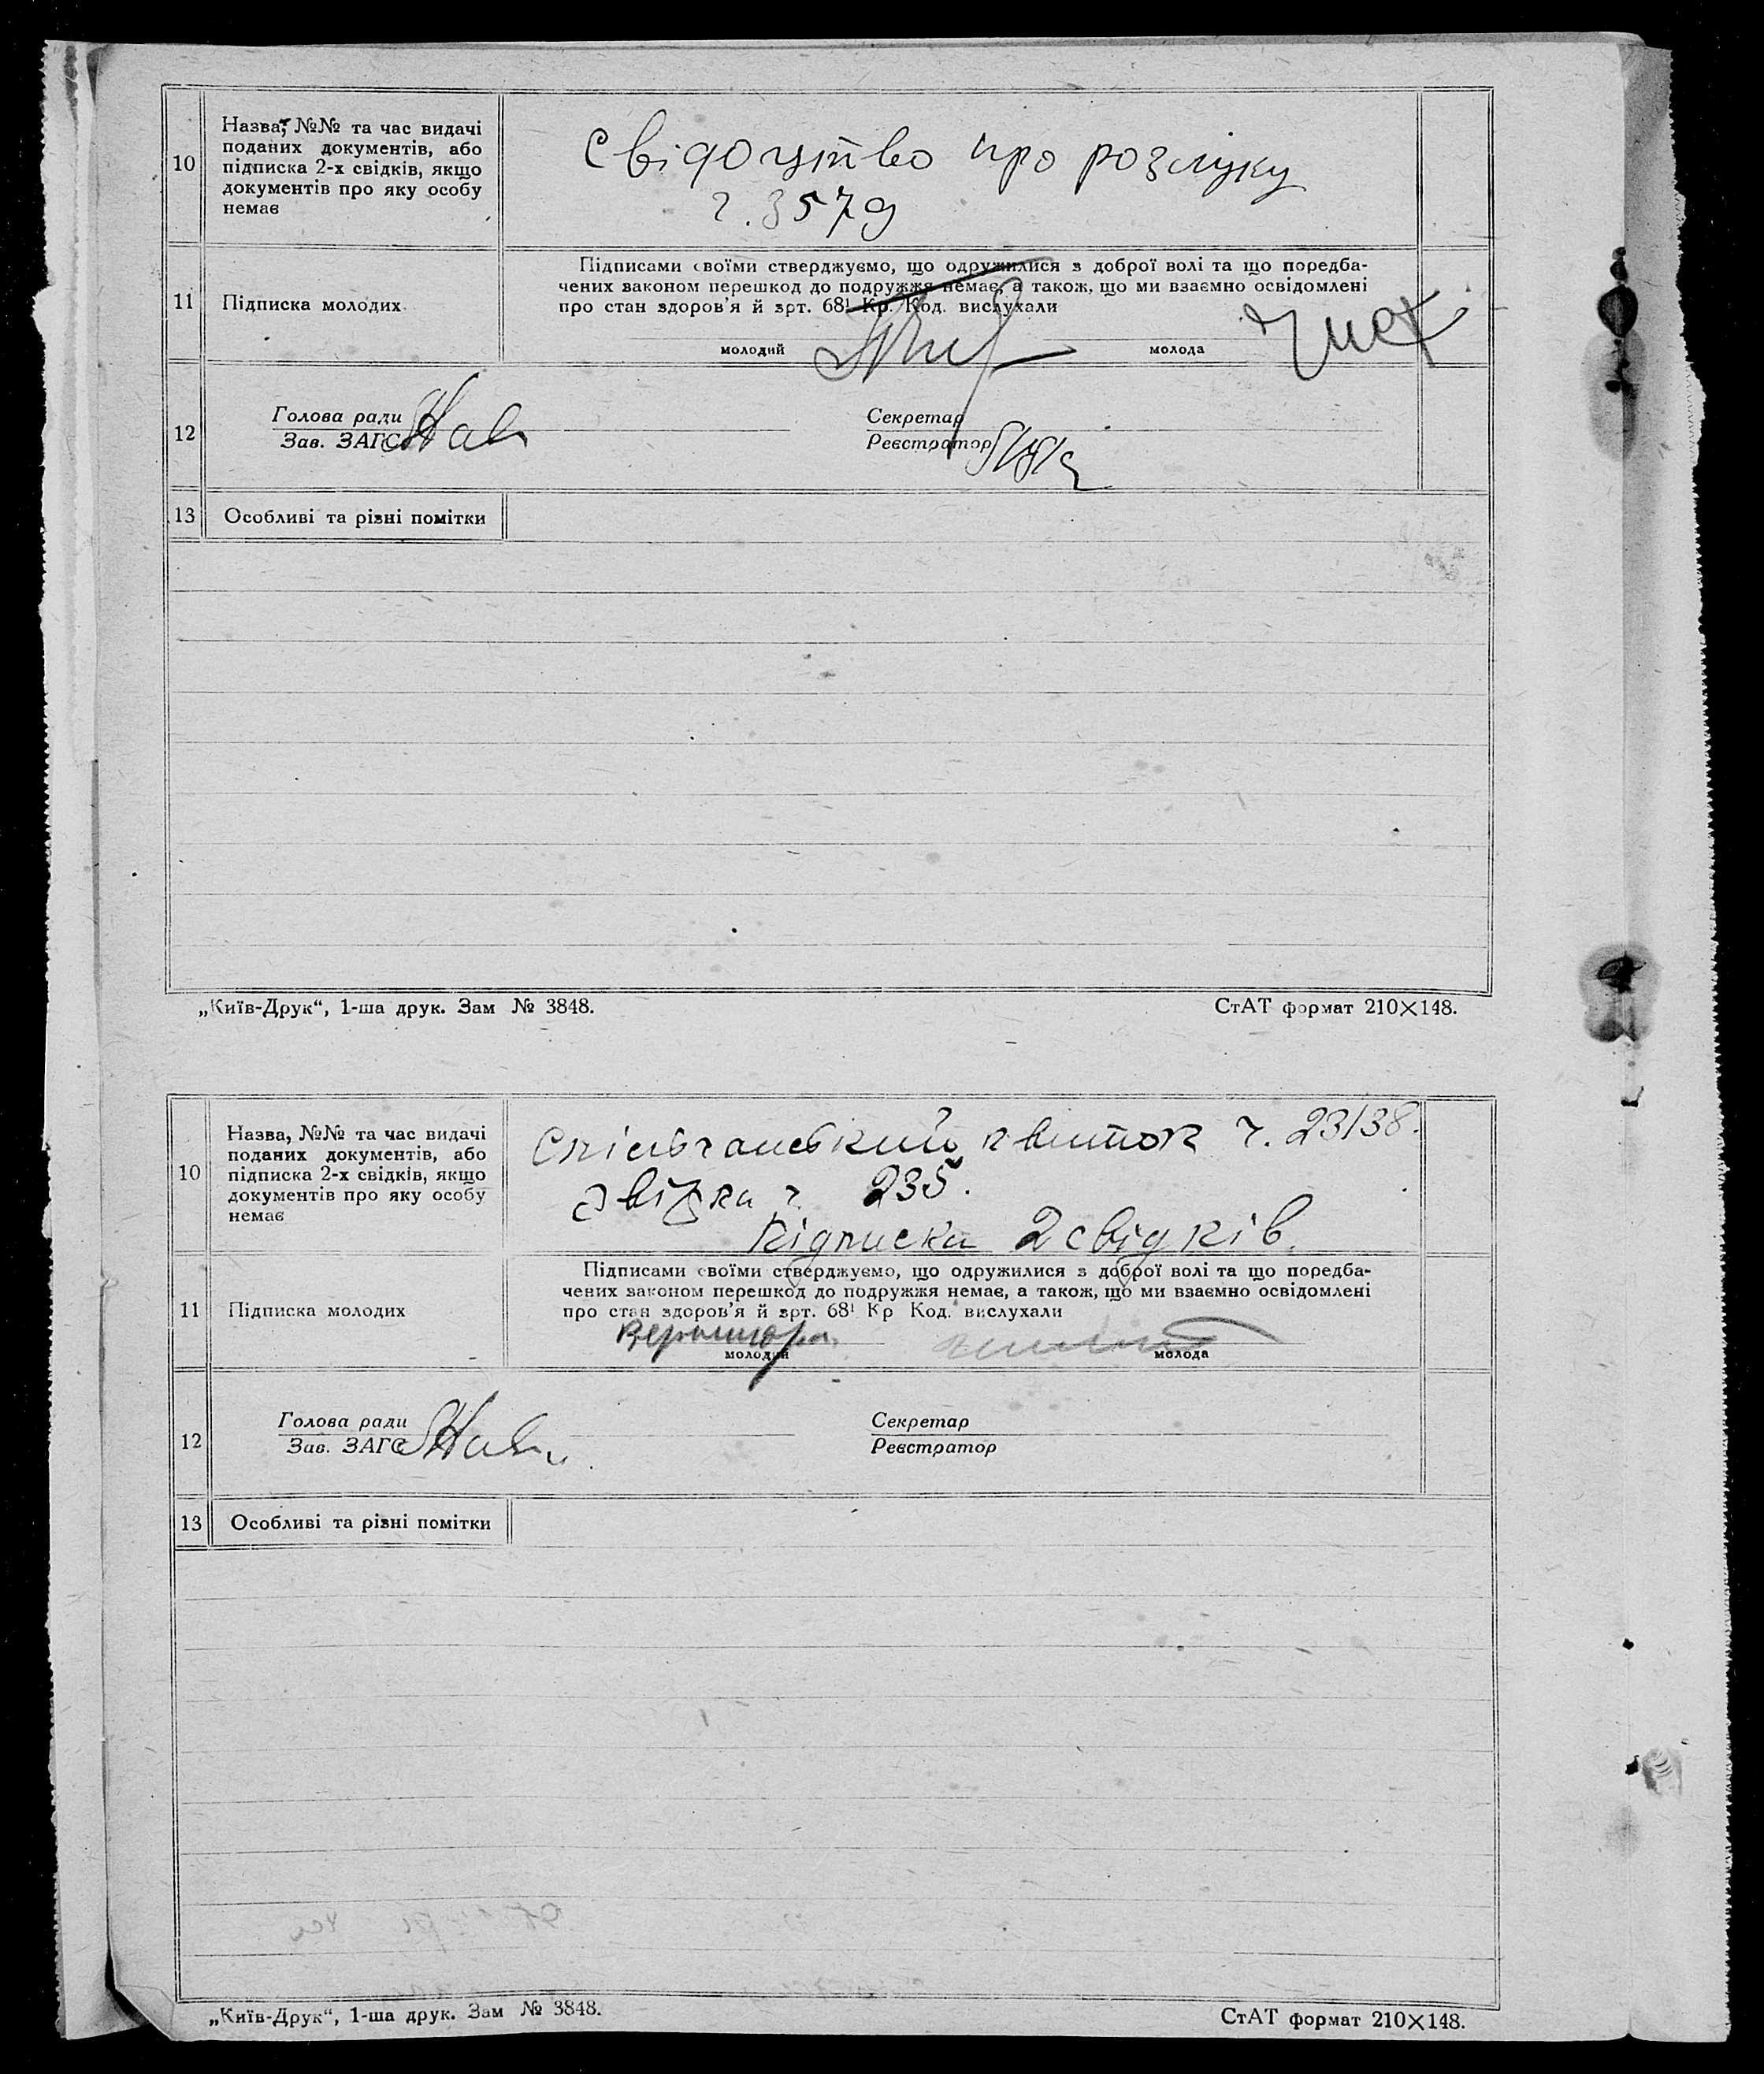 10
Назва, №№ та час видачі
поданих документів, або
підписка 2-х свідків, якщо
документів про яку особу
немає
Свідоцтво про розлуку
ч. 3579
11
Підписка молодих
Підписами своїми стверджуємо, що одружилися з доброї волі та що поредба-
чених законом перешкод до подружжя немає, а також, що ми взаємно освідомлені
про стан здоров'я й арт. 68¹ Кр. Код. вислухали
молодий
молода
12
Голова ради
Зав. ЗАГС
Секретар
Реєстратор
13
Особливі та різні помітки
„Київ-Друк“, 1-ша друк. Зам № 3848.
СтАТ формат 210×148.
10
Назва, №№ та час видачі
поданих документів, або
підписка 2-х свідків, якщо
документів про яку особу
немає
квиток ч. 23138.
звідка ч. 235.
Підписка 2 свідків.
11
Підписка молодих
Підписами своїми стверджуємо, що одружилися з доброї волі та що поредба-
чених законом перешкод до подружжя немає, а також, що ми взаємно освідомлені
про стан здоров'я й арт. 68¹ Кр Код. вислухали
молодий
молода
12
Голова ради
Зав. ЗАГС
Секретар
Реєстратор
13
Особливі та різні помітки
„Київ-Друк“, 1-ша друк. Зам № 3848.
СтАТ формат 210×148.